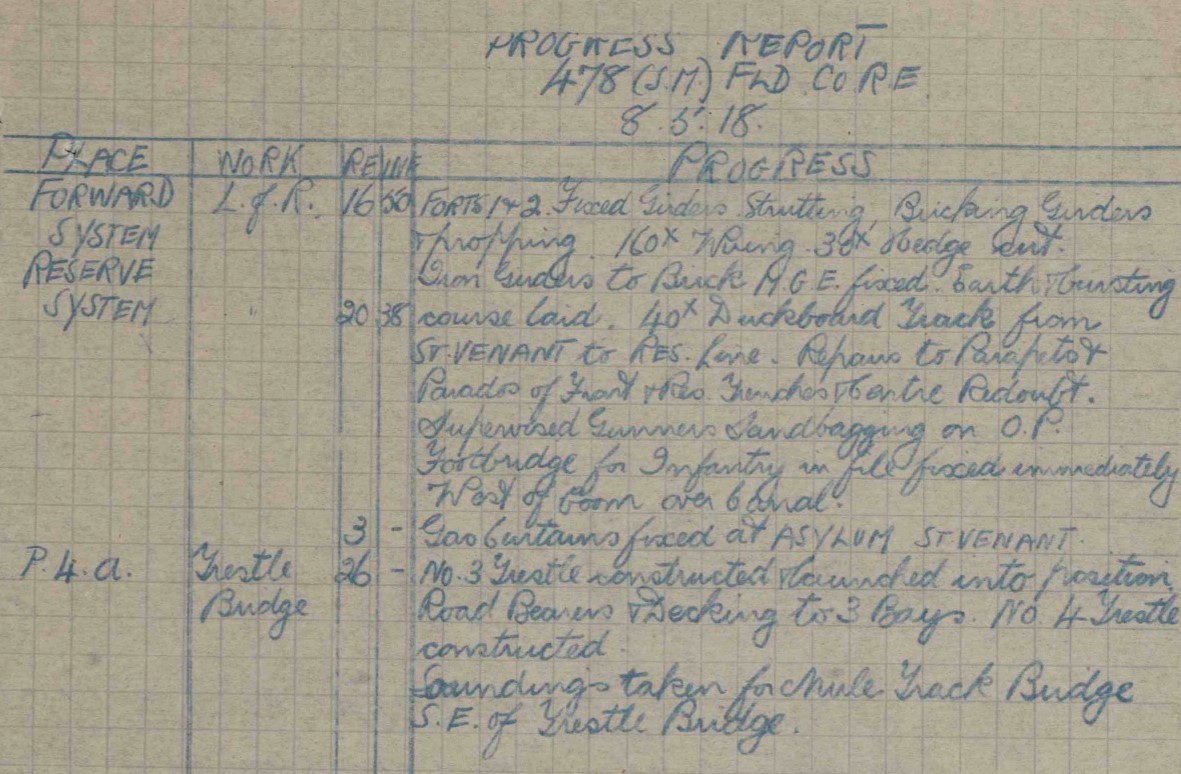 PROGRESS REPORT
478 (S.M) FLD CO RE
8.5.18.
PLACE WORK RE INF PROGRESS
FORWARD L.G.R. 16 50 FORTS 1 & 2. Fixed Girders Strutting, Bricking Girders
SYSTEM & propping. 160x Wiring. 30x Hedge cut.
RESERVE Iron Girders to Brick M.G.E. fixed. Earth & Bursting
SYSTEM " 20 38 course laid. 40x Duckboard Track from
ST. VENANT to RES. Line. Repairs to Parapets &
Parados of Front & Res. Trenches & Centre Redoubt.
Supervised Gunners Sandbagging on O.P.
Footbridge for Infantry in file fixed immediately
West of Boom over Canal.
3 - Gas Curtains fixed at ASYLUM ST VENANT.
P.4.a. Trestle 26 - No. 3 Trestle constructed & launched into position
Bridge Road Bearers & Decking to 3 Bays. No. 4 Trestle
constructed.
Soundings taken for Mule Track Bridge
S.E. of Trestle Bridge.